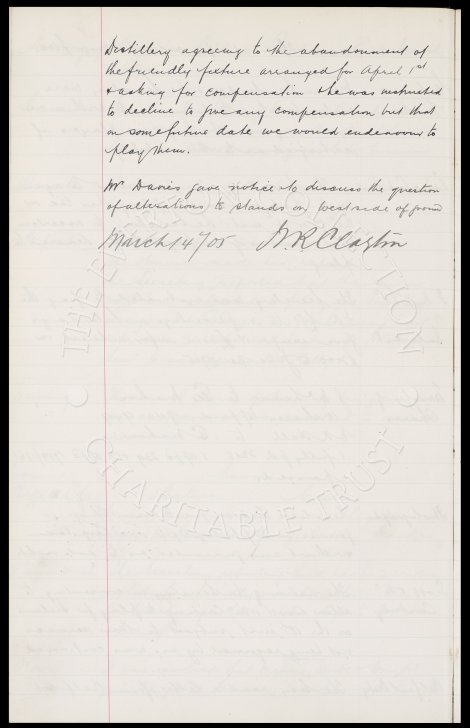 Distillery agreeing to the abandonment of
the friendly fixture arranged for April 1st
& asking for compensation & he was instructed
to decline to give any compensation but that
on some future date we would endeavour to
play them.
Mr Davies gave notice to discuss the question
of alterations to stands on west side of ground
March 14/05 W.R. Clayton
THE EVERTON COLLECTION
CHARITABLE TRUST